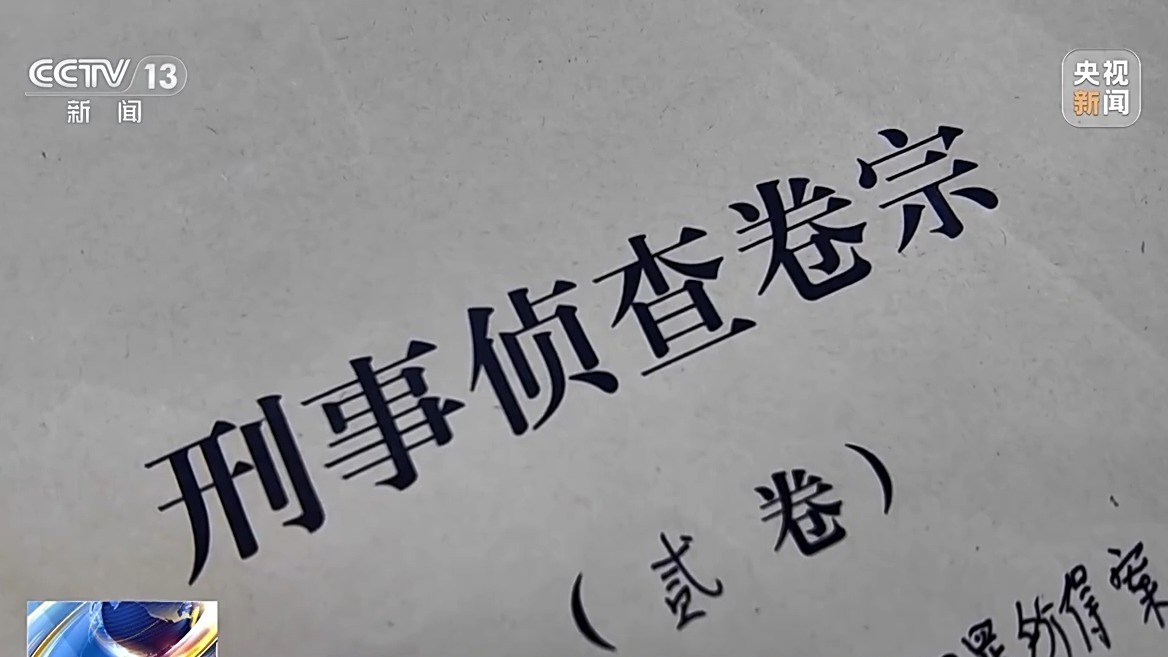 CCTV 13
新闻
央视
新闻
刑事侦查卷宗
（贰 卷）
得案